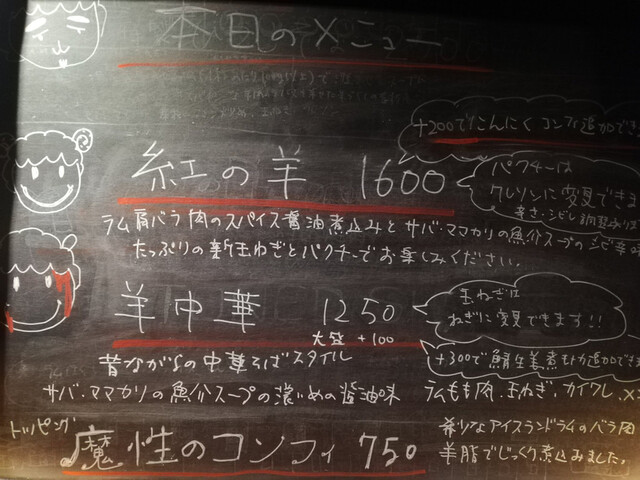 本日のメニュー
+200でにんにくコンフィ追加でき
紅の羊 1600
パクチーは
クレソンに変更できま
辛さ・シビレ調整
ラム肩バラ肉のスパイス醤油煮込みとサバ・ママカリの魚介スープのシビ辛
たっぷりの新玉ねぎとパクチーでお楽しみください。
羊中華 1250
大盛 +100
玉ねぎは
ねぎに変更できます!!
+300で鯖生姜煮 追加でき
昔ながらの中華そばスタイル
サバ・ママカリの魚介スープの濃いめの醤油味
ラムもも肉、玉ねぎ、カイワレ、メ
トッピング
魔性のコンフィ 750
希少なアイスランドラムのバラ肉
羊脂でじっくり煮込みました。